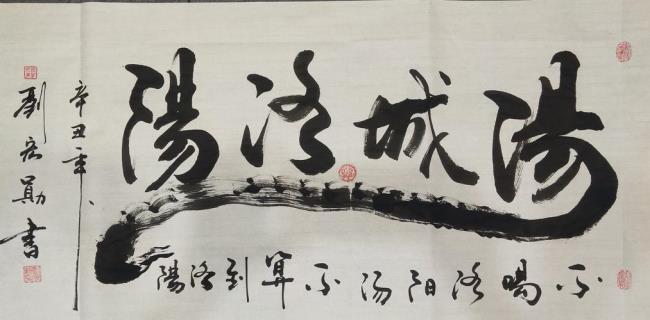 湯城洛陽
不喝洛阳汤不算到洛陽
辛丑年
劉宏勛書